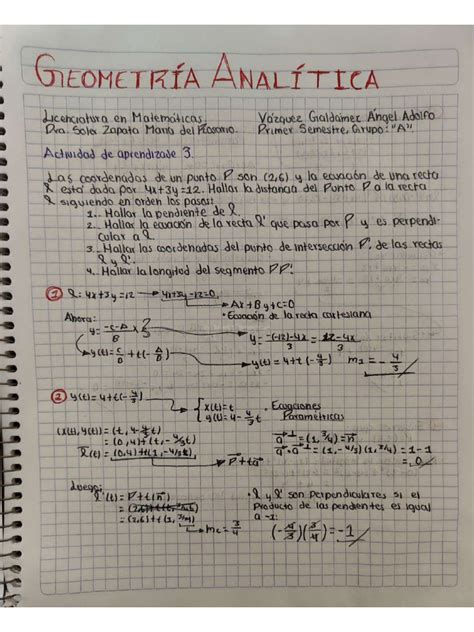 GEOMETRÍA ANALÍTICA
Licenciatura en Matemáticas. Vázquez Galdámez Ángel Adolfo
Dra. Sola Zapata María del Rosario. Primer Semestre, Grupo: "A"
Actividad de aprendizaje 3.
Las coordenadas de un punto P son (2,6) y la ecuación de una recta
ℓ está dada por 4x+3y=12. Hallar la distancia del Punto P a la recta
ℓ siguiendo en orden los pasos:
1. Hallar la pendiente de ℓ.
2. Hallar la ecuación de la recta ℓ' que pasa por P y es perpendi-
cular a ℓ
3. Hallar las coordenadas del punto de intersección P', de las rectas
ℓ y ℓ'.
4. Hallar la longitud del segmento PP'.
① ℓ: 4x+3y=12 → 4x+3y-12=0
→ Ax+By+C=0
Ahora: • Ecuación de la recta cartesiana
y = (-C-Ax)/B → y = (-(-12)-4x)/3 = (12-4x)/3
→ y(t) = C/B + t(-A/B) → y(t) = 4+t(-4/3) m₁ = -4/3
② y(t) = 4+t(-4/3) → { x(t)=t • Ecuaciones
y(t)=4-4/3t Paramétricas
(x(t), y(t)) = (t, 4-4/3t)
= (0,4)+(t,-4/3t)
ℓ(t) = (0,4)+t(1,-4/3) → P+ta
a⊥ = (1, 3/4) = n
a·a⊥ = (1,-4/3)(1,3/4) = 1-1
= 0
Luego:
ℓ'(t) = P+t(n)
= (2,6)+t(1, 3/4) → m₂ = 3/4
• ℓ y ℓ' son perpendiculares si el
Producto de las pendientes es igual
a -1:
(-4/3)(3/4) = -1